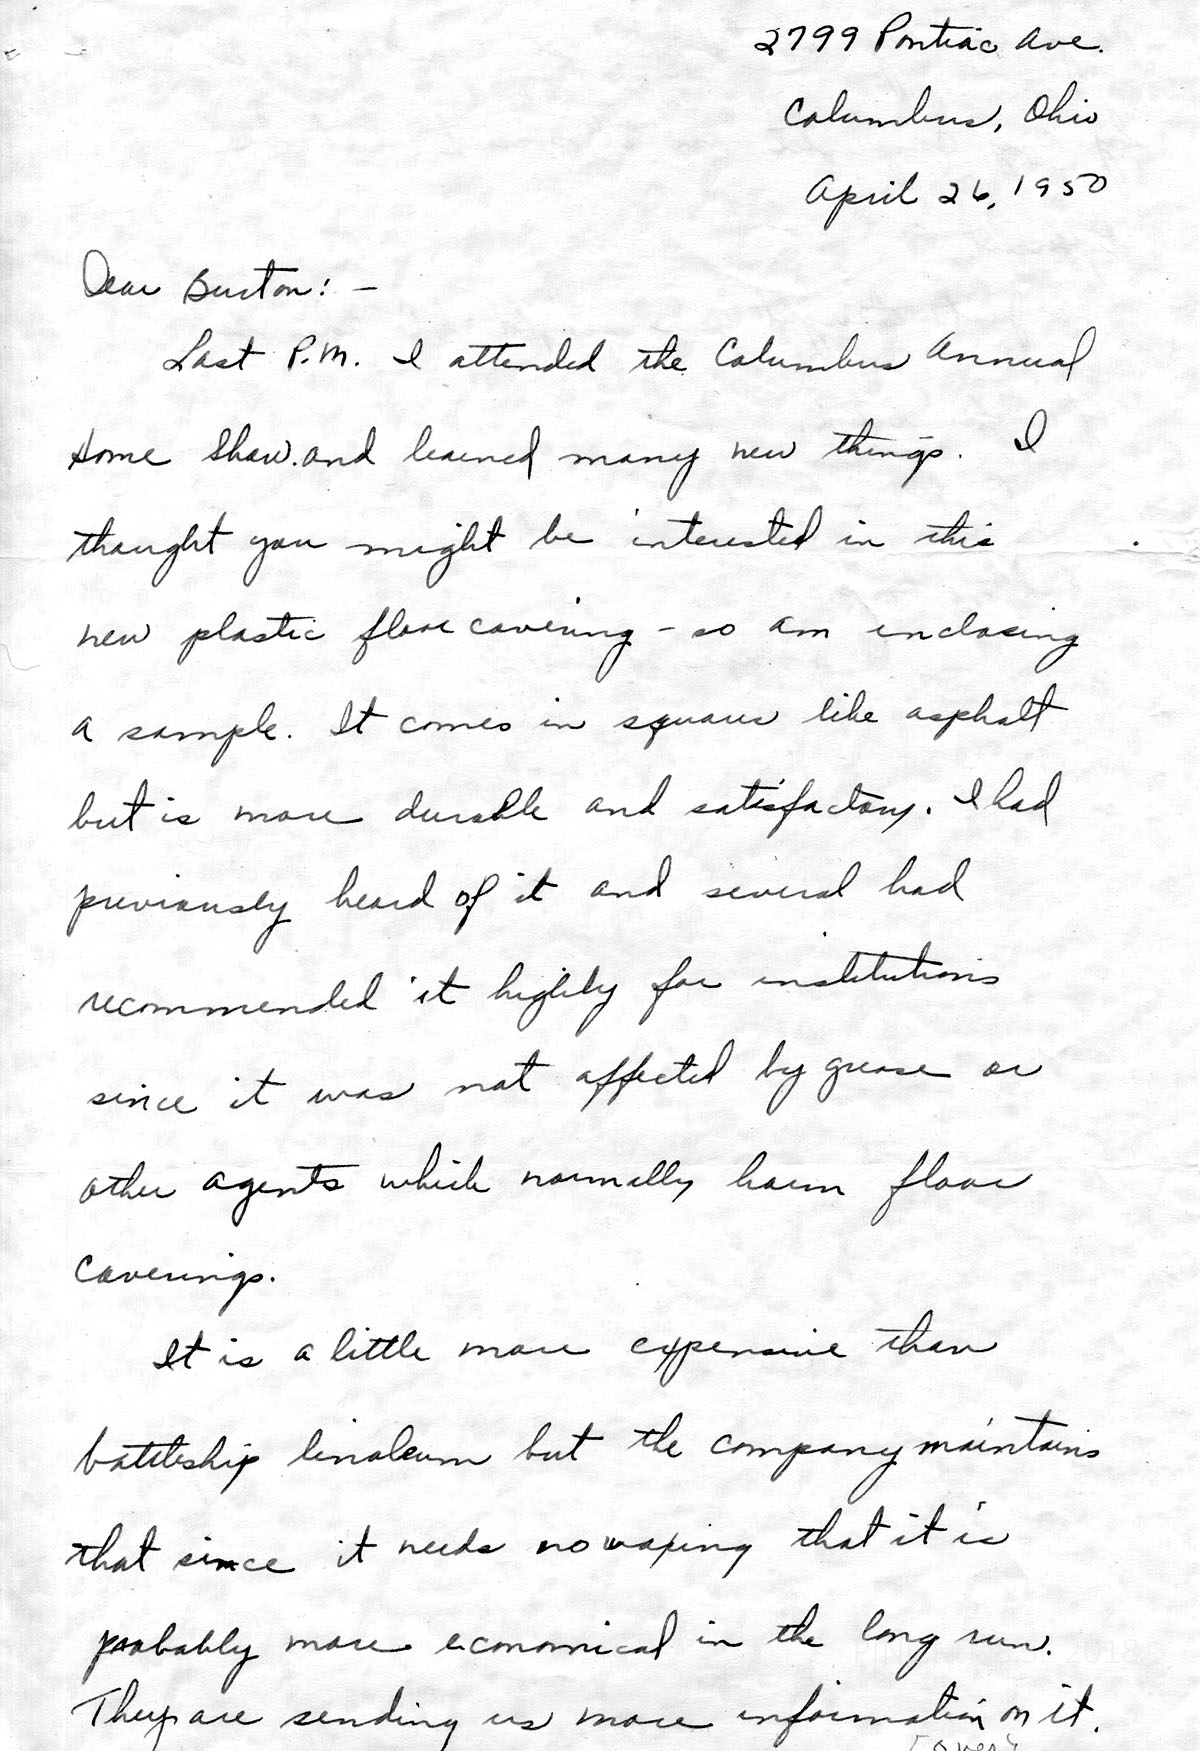 2799 Pontiac Ave.
Columbus, Ohio
April 26, 1950
Dear Burton: -
Last P.M. I attended the Columbus Annual
Home Show and learned many new things. I
thought you might be interested in this
new plastic floor covering - so am enclosing
a sample. It comes in squares like asphalt
but is more durable and satisfactory. I had
previously heard of it and several had
recommended it highly for institutions
since it was not affected by grease or
other agents which normally harm floor
coverings.
It is a little more expensive than
battleship linoleum but the company maintains
that since it needs no waxing that it is
probably more economical in the long run.
They are sending us more information on it.
(over)